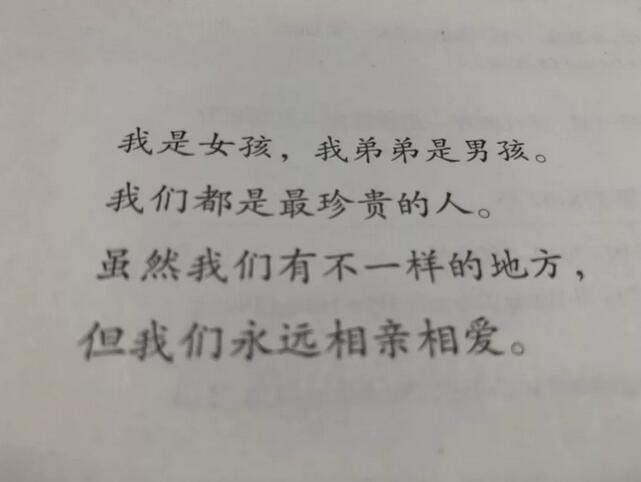 我是女孩，我弟弟是男孩。
我们都是最珍贵的人。
虽然我们有不一样的地方，
但我们永远相亲相爱。